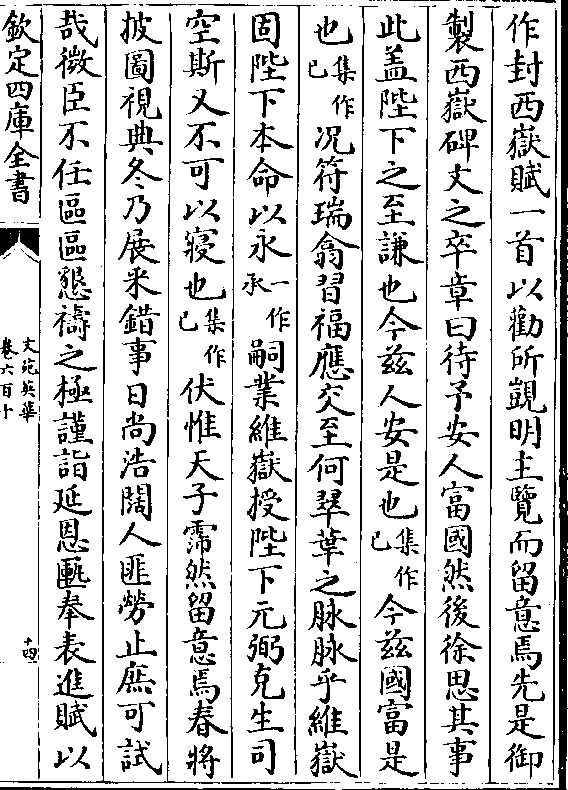 作封西嶽賦一首以勸所覬明主覽而留意焉先是御
製西嶽碑文之卒章曰待予安人富國然後徐思其事
此盖陛下之至謙也今兹人安是也集作已今兹國富是
也集作已况符瑞翕習福應交至何翠華之脉脉乎維嶽
固陛下本命以永一作承嗣業維嶽授陛下元弼克生司
空斯又不可以寝也集作已伏惟天子霈然留意焉春將
披圖視典冬乃展釆錯事日尚浩闊人匪勞止庶可試
哉微臣不任區區懇禱之極謹詣延恩匭奉表進賦以
欽定四庫全書
文苑英華
卷六百十
十四